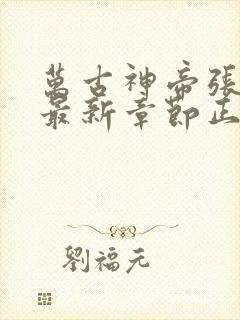 萬古神帝張
最新章節正
劉福元